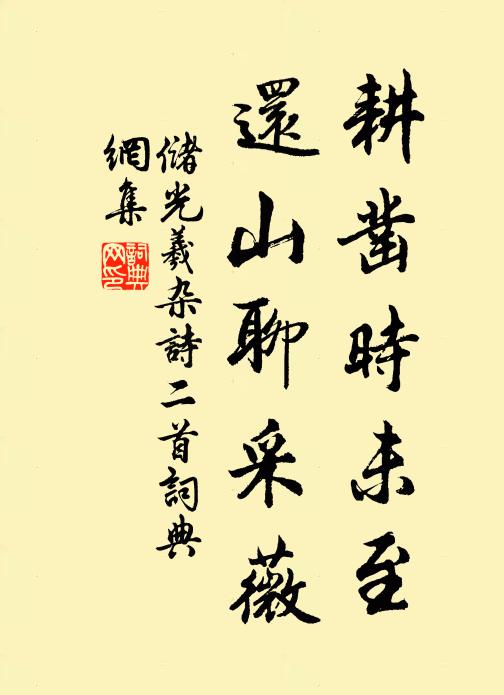 耕鑿時未至
還山聊采薇
儲光羲杂詩二首詞典
網集
詞典
网印